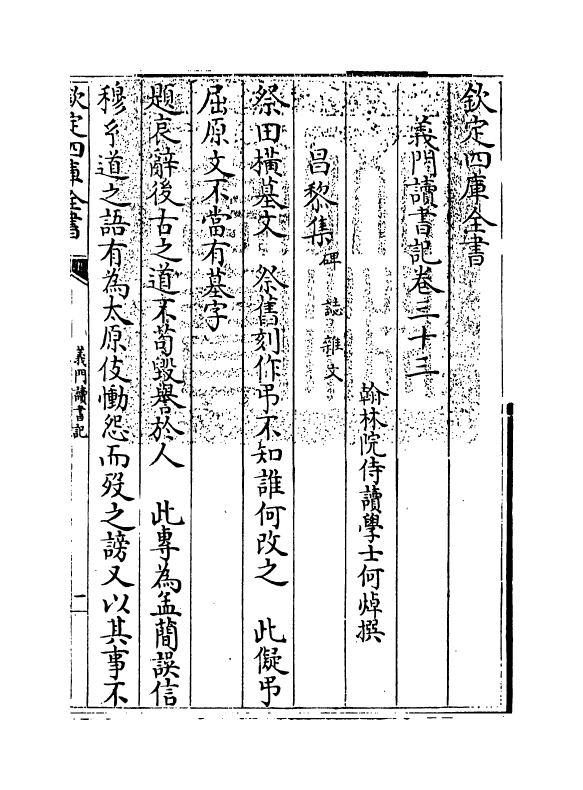 欽定四庫全書
義門讀書記卷三十三
翰林院侍讀學士何焯撰
昌黎集碑誌雜文
祭田橫墓文 祭舊刻作弔不知誰何改之 此儗弔
屈原文不當有墓字
題哀辭後古之道不苟毀譽於人 此專為孟簡誤信
穆予道之語有為太原伎慟怨而歿之謗又以其事不
欽定四庫全書
義門讀書記
一